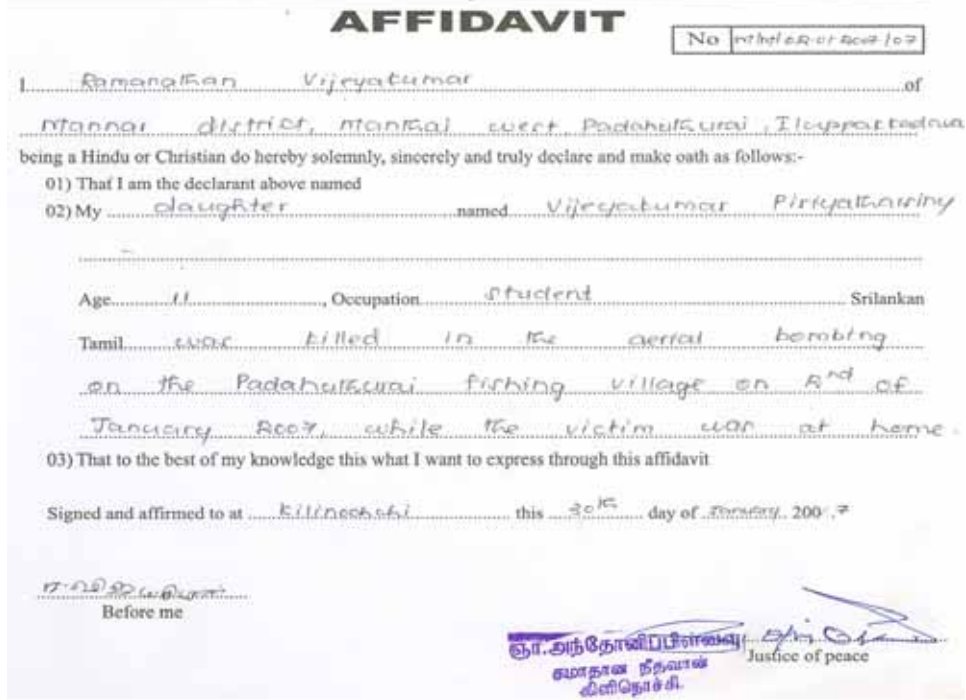 AFFIDAVIT
No
I Ramanathan Vijeyakumar of
Mannar district, Manthai west, Padahuthurai, Iluppakkadavai
being a Hindu or Christian do hereby solemnly, sincerely and truly declare and make oath as follows:-
01) That I am the declarant above named
02) My daughter named Vijeyakumar
Age 11, Occupation student Srilankan
Tamil was killed in the aerial bombing
on the Padahuthurai fishing village on 2nd of
January 2007, while the victim was at home.
03) That to the best of my knowledge this what I want to express through this affidavit
Signed and affirmed to at Kilinochchi this 30th day of January 2007
Before me
ஞா.அந்தோனிப்பிள்ளை
Justice of peace
சமாதான நீதவான்
கிளிநொச்சி.